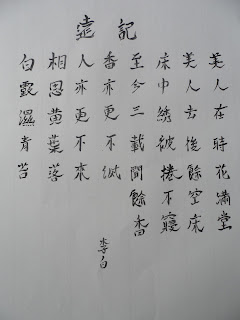 記遠
美人在時花滿堂
美人去後餘空床
床中綉被捲不寢
至今三載聞餘香
香亦更不滅
人亦更不來
相思黃葉落
白露濕青苔
李白